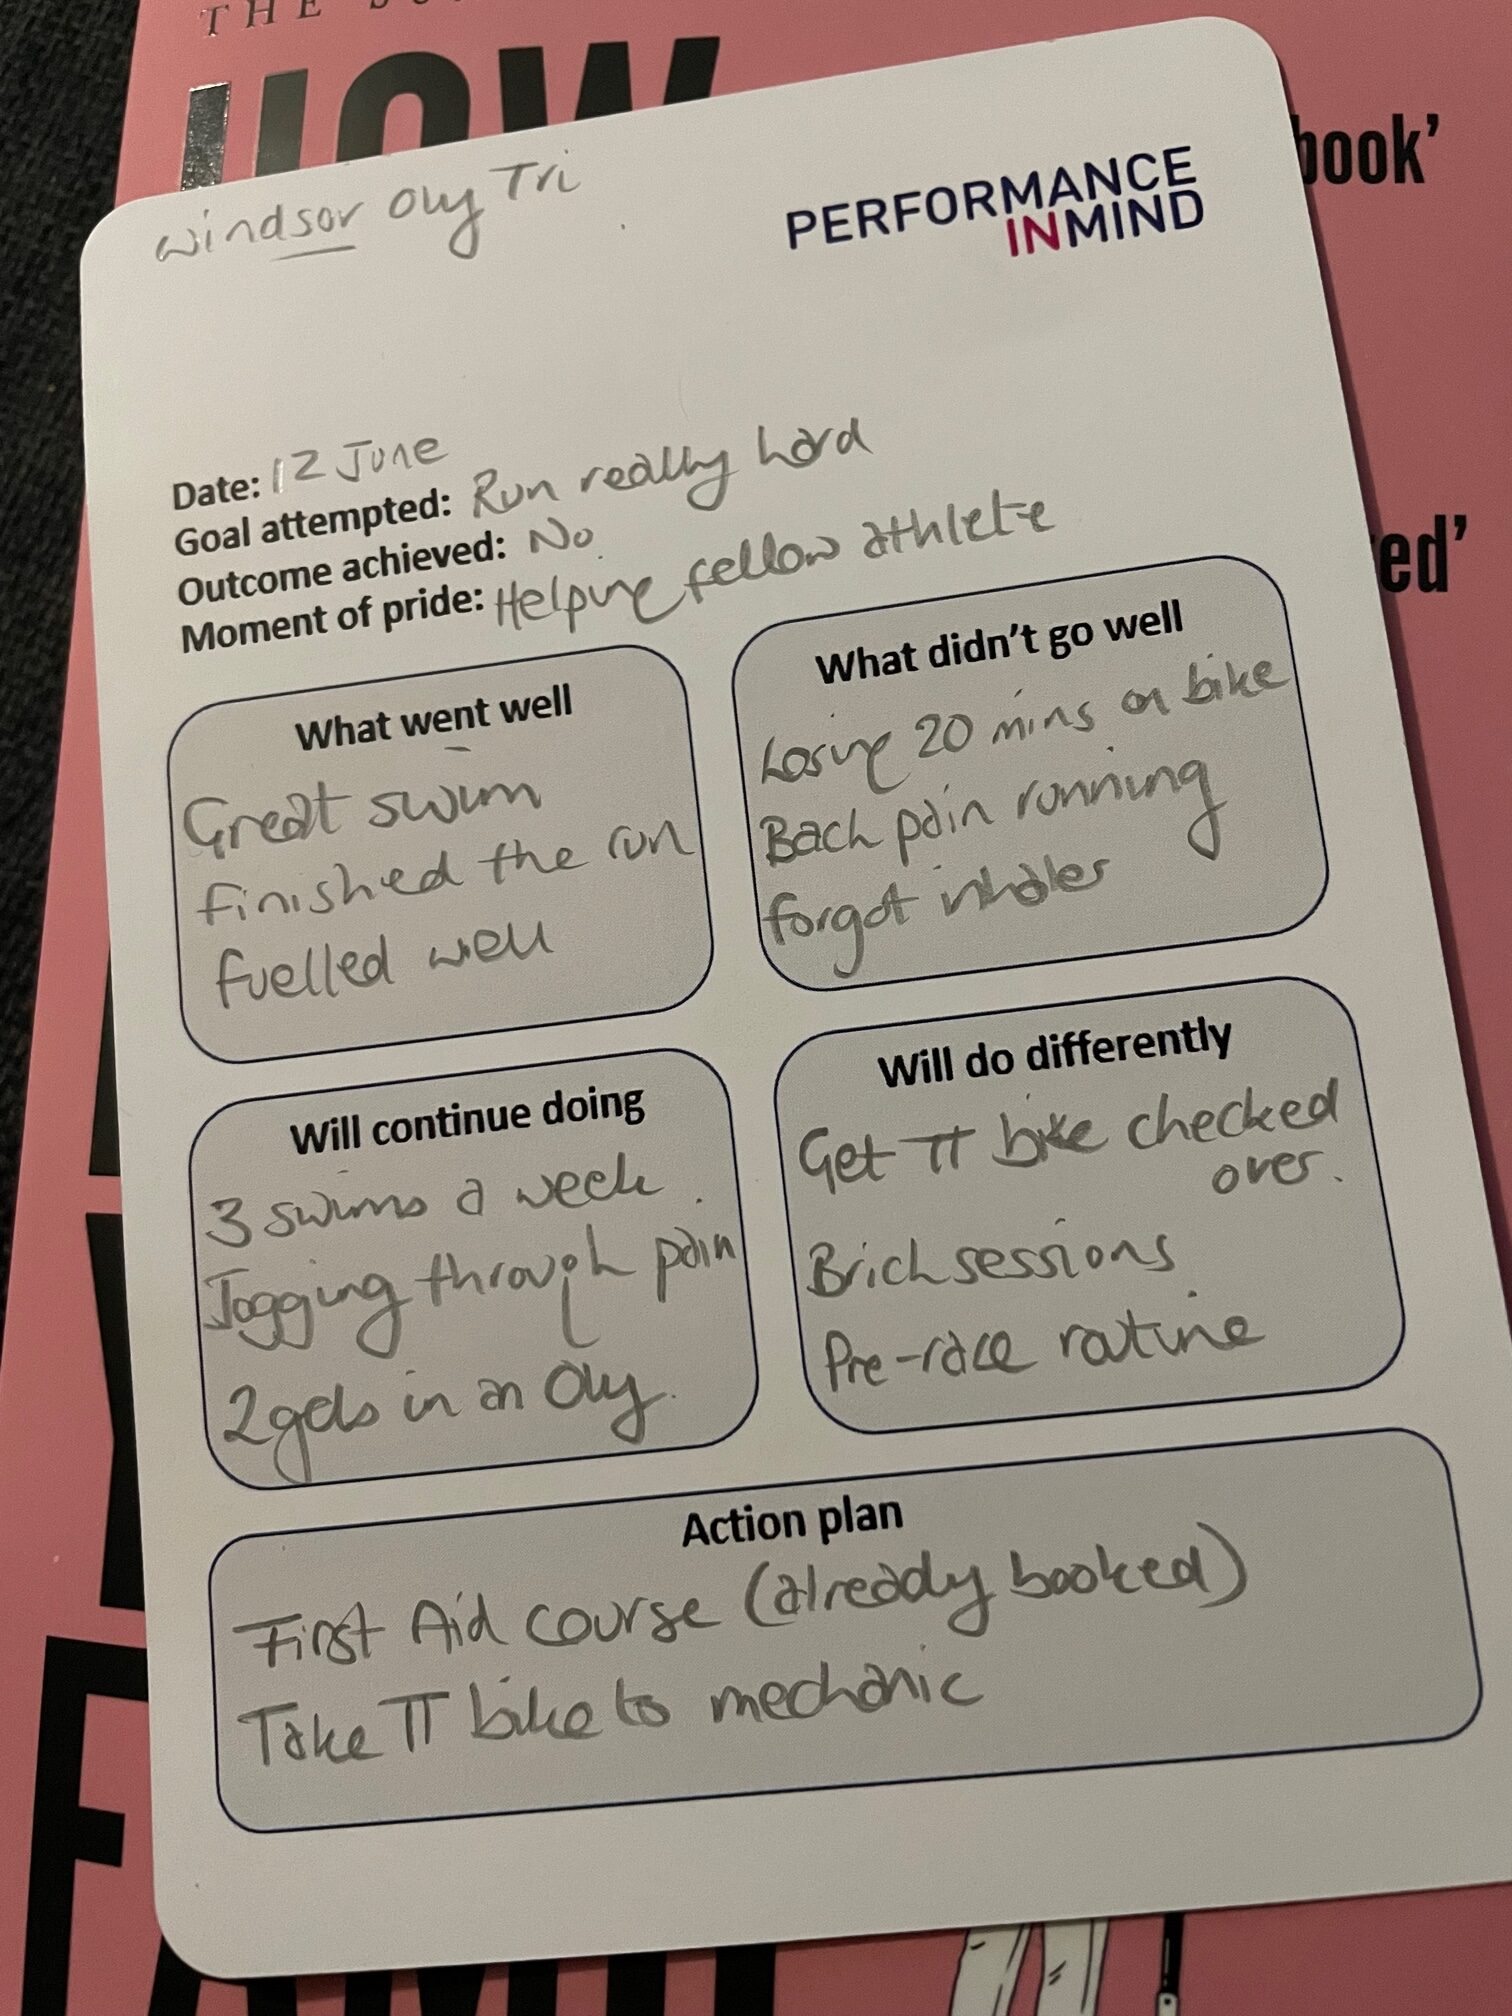 THE
HOW
book'
ed'
Windsor Oly Tri
PERFORMANCE
INMIND
Date: 12 June
Goal attempted: Run really hard
Outcome achieved: No
Moment of pride: Helping fellow athlete
What went well
Great swim
finished the run
fuelled well
What didn't go well
Losing 20 mins on bike
Back pain running
forgot inhaler
Will continue doing
3 swims a week
Jogging through pain
2 gels in an Oly.
Will do differently
Get TT bike checked
over.
Brick sessions
Pre-race routine
Action plan
First Aid course (already booked)
Take TT bike to mechanic